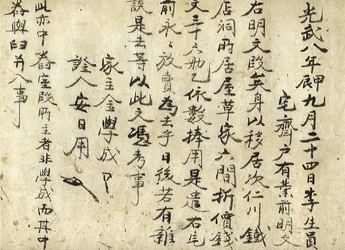 光武八年甲辰九月二十四日李生員
宅齋戶有業前明文
右明文段矣身以移居次仁川鐵
店祠所居屋草家六間折價錢
文三十六兩乙依數捧用是遣右宅
前永永放賣為去乎日後若有雜
談是去等以此文憑考事
家主金學成
證人安日用
此亦中舂室段所主者非學成而其中
舂與臼并入事